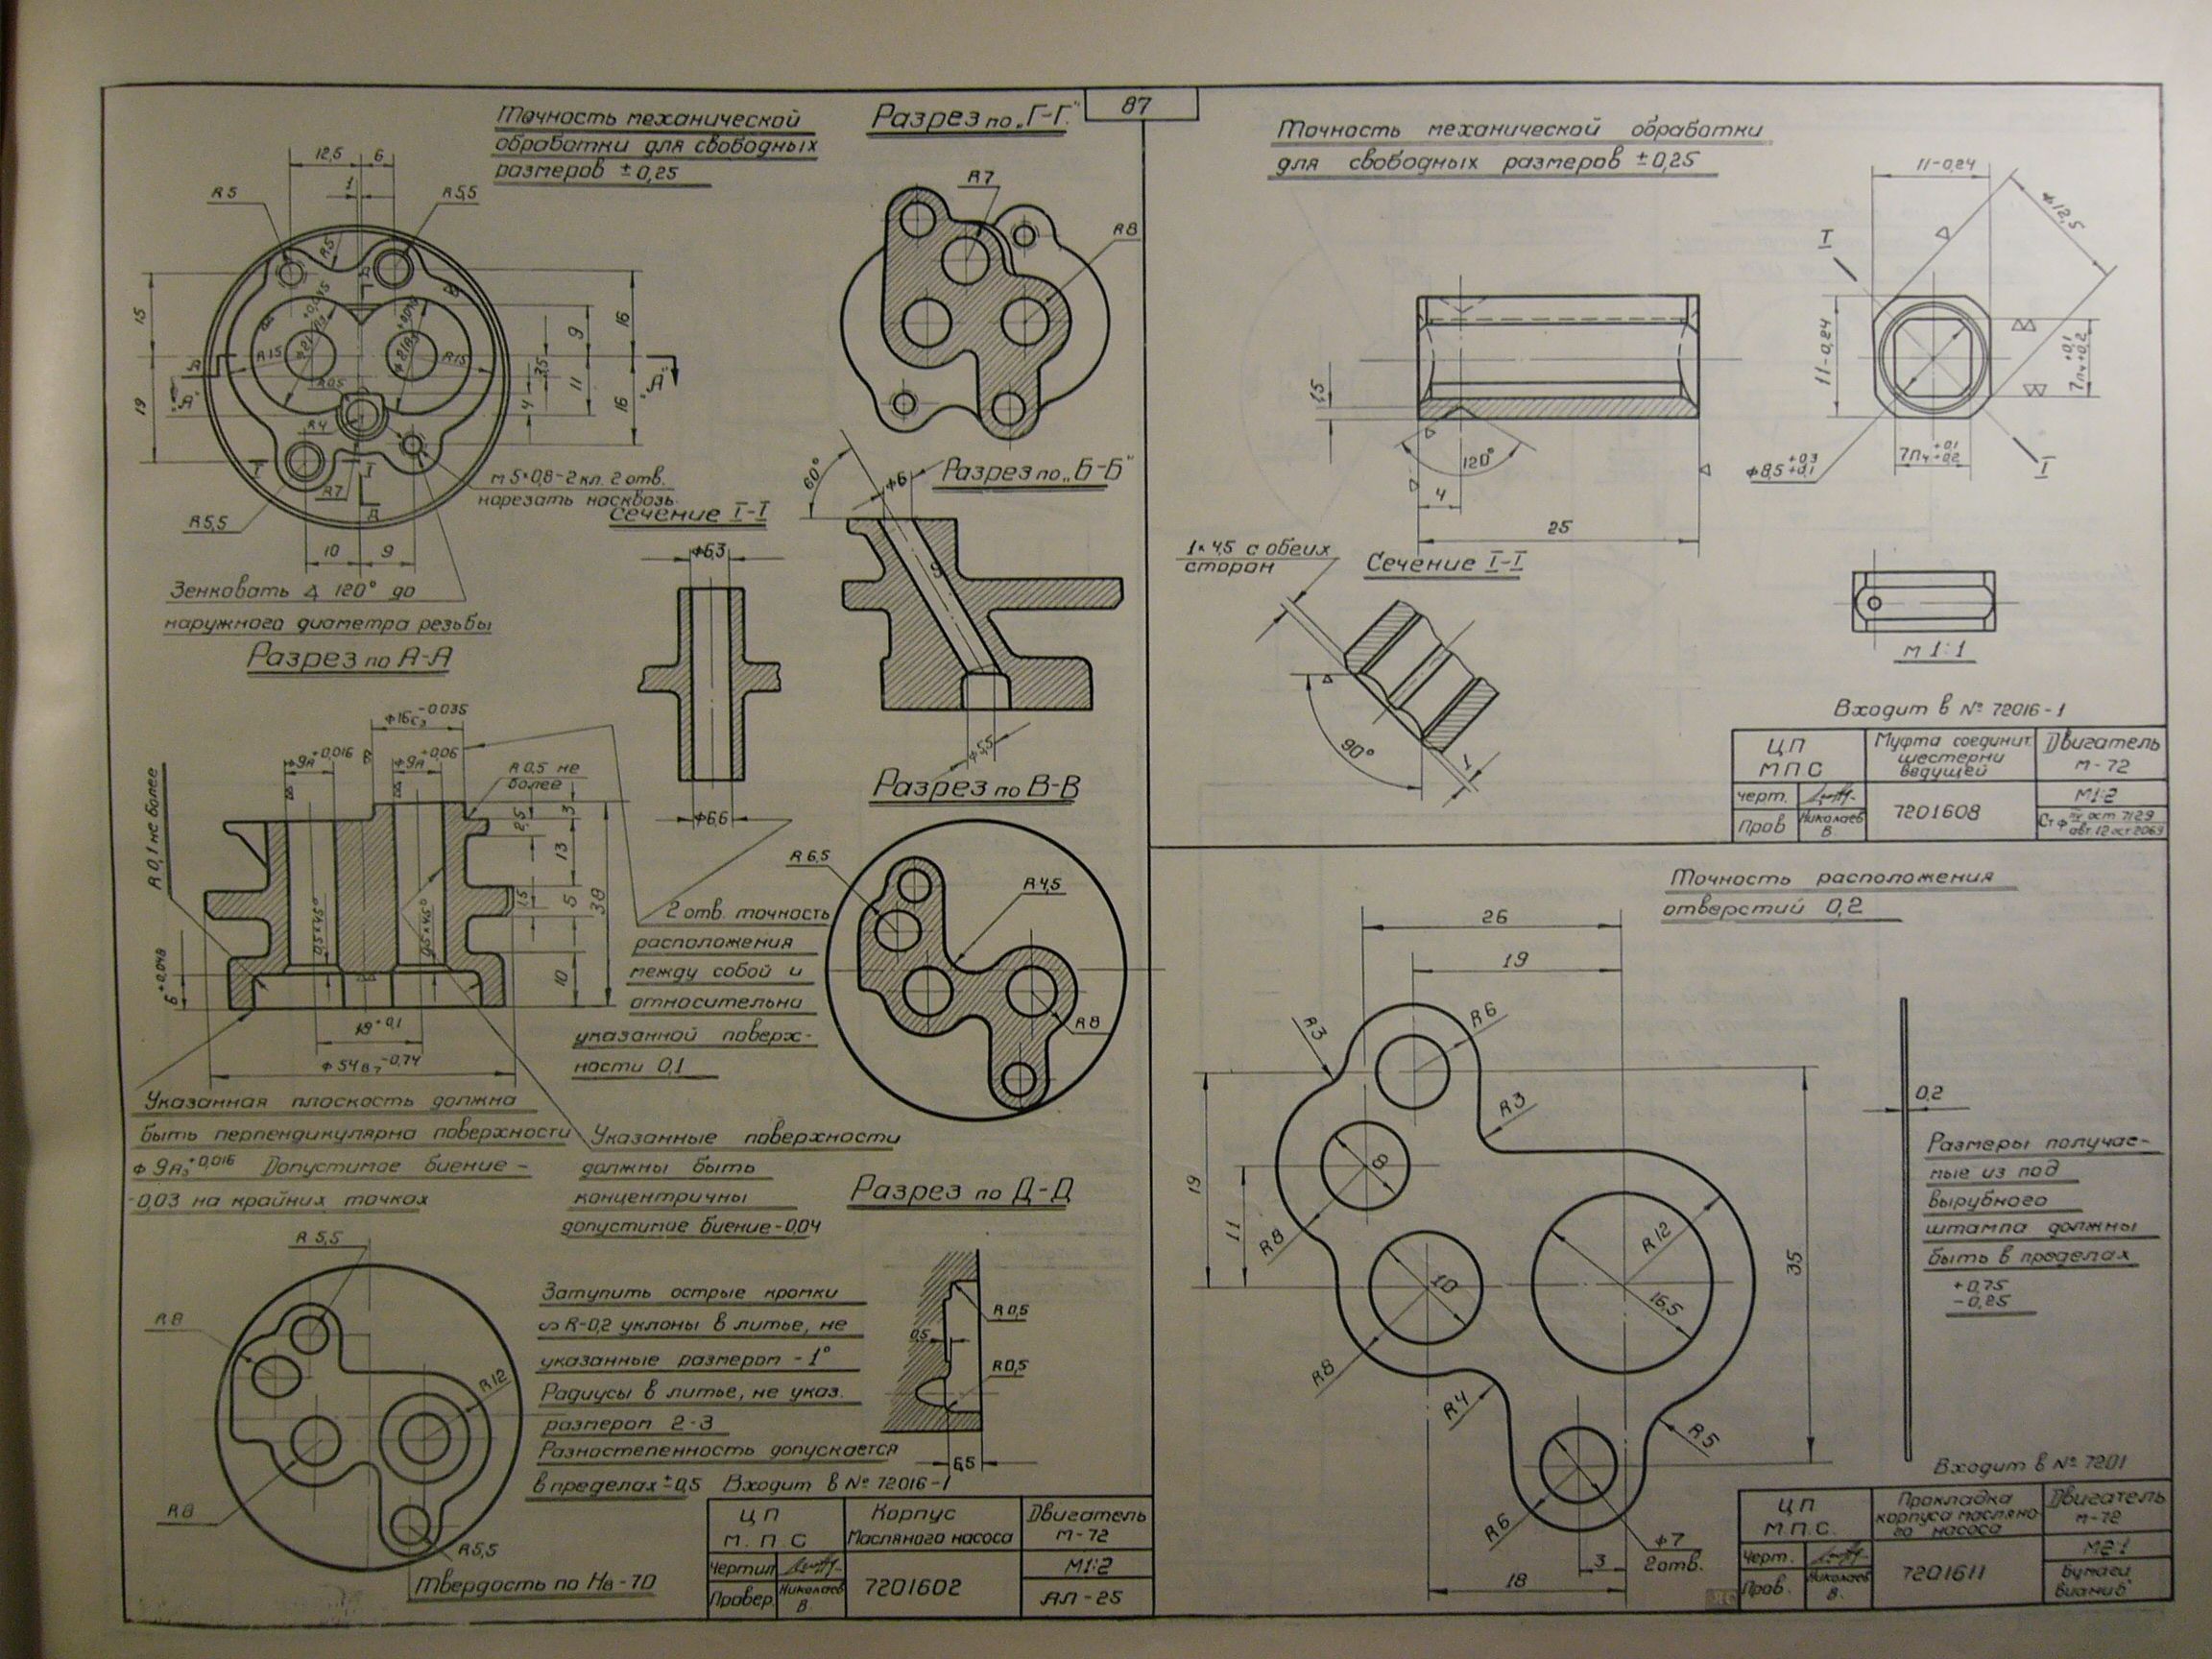 87
Точность механической
обработки для свободных
размеров ± 0,25
Разрез по „Г-Г"
12,5
6
1
R5
R5,5
R5
R7
R8
15
19
R15
R15
16
9
3,5
11
4
16
„А"
„А"
R4
R7
R5,5
I
I
Д
10
9
м 5×0,8-2 кл. 2 отв.
нарезать насквозь
Зенковать 120° до
наружного диаметра резьбы
Сечение I-I
ф6,3
ф6,6
Разрез по „Б-Б"
60°
ф6
ф5,5
Разрез по А-А
ф16С₃ -0,035
ф9А +0,016
ф9А +0,06
R 0,5 не
более
R 0,1 не более
2,5
3
13
1,5
5
38
10
0,5×45°
0,5×45°
6 +0,048
19 +0,1
ф 54 В₇ -0,74
2 отв. точность
расположения
между собой и
относительно
указанной поверх-
ности 0,1
Разрез по В-В
R 6,5
R4,5
R8
Указанная плоскость должна
быть перпендикулярна поверхности
ф 9А₃ +0,016 Допустимое биение -
-0,03 на крайних точках
Указанные поверхности
должны быть
концентричны
допустимое биение-0,04
Разрез по Д-Д
R0,5
0,5
R0,5
6,5
R 5,5
R8
R12
R8
R5,5
Затупить острые кромки
∽ R-0,2 уклоны в литье, не
указанные размером - 1°
Радиусы в литье, не указ.
размером 2-3
Разностепенность допускается
в пределах ± 0,5 Входит в № 72016-1
Твердость по Нв-70
ЦП
М.П.С
Корпус
Масляного насоса
Двигатель
М-72
Чертил
Провер.
Николаев
В.
7201602
М1:2
АЛ-25
Точность механической обработки
для свободных размеров ± 0,25
11-0,24
ф12,5
I
11-0,24
7п₄ +0,1 +0,2
7п₄ +0,1 +0,2
ф8,5 +0,3 +0,1
I
1,5
120°
4
25
1×4,5 с обеих
сторон
Сечение I-I
90°
1
М 1:1
Входит в № 72016-1
ЦП
МПС
Муфта соединит.
шестерни
ведущей
Двигатель
М-72
Черт.
Пров
Николаев
В.
7201608
М1:2
ост 7129
12 ост 2069
Точность расположения
отверстий 0,2
26
19
R3
R6
R3
19
11
8
R8
10
R8
R12
16,5
35
R4
R5
R6
ф7
2отв.
3
18
0,2
Размеры получае-
мые из под
вырубного
штампа должны
быть в пределах
+0,75
-0,25
Входит в № 7201
ЦП
М.П.С.
Прокладка
корпуса масляно-
го насоса
Двигатель
М-72
Черт.
Пров.
Николаев
В.
7201611
М2:1
Бумага